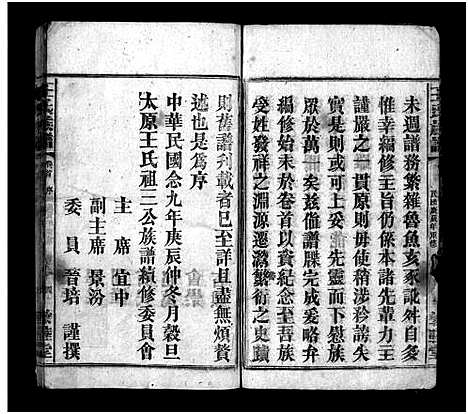 未週譜務繁雜魯魚亥豕訛舛自多
惟幸編修主旨仍係本諸先輩力主
謹嚴之一貫原則毋使稍涉矜誇失
實是則可以上妥先靈而下慰族
眾於萬一矣茲值譜牒完成爰略弁
編修始末於卷首以資紀念至吾族
受姓發祥之淵源遷繁衍之史蹟
則舊譜刋載者已至詳且盡無煩贅
述也是為序
中華民國念九年庚辰仲冬月穀旦
太原王氏祖二公族譜續修委員會
主席 宜中
副主席 景汾
委員 晉培 謹撰
王氏族譜
卷首 序
民國庚辰年重修